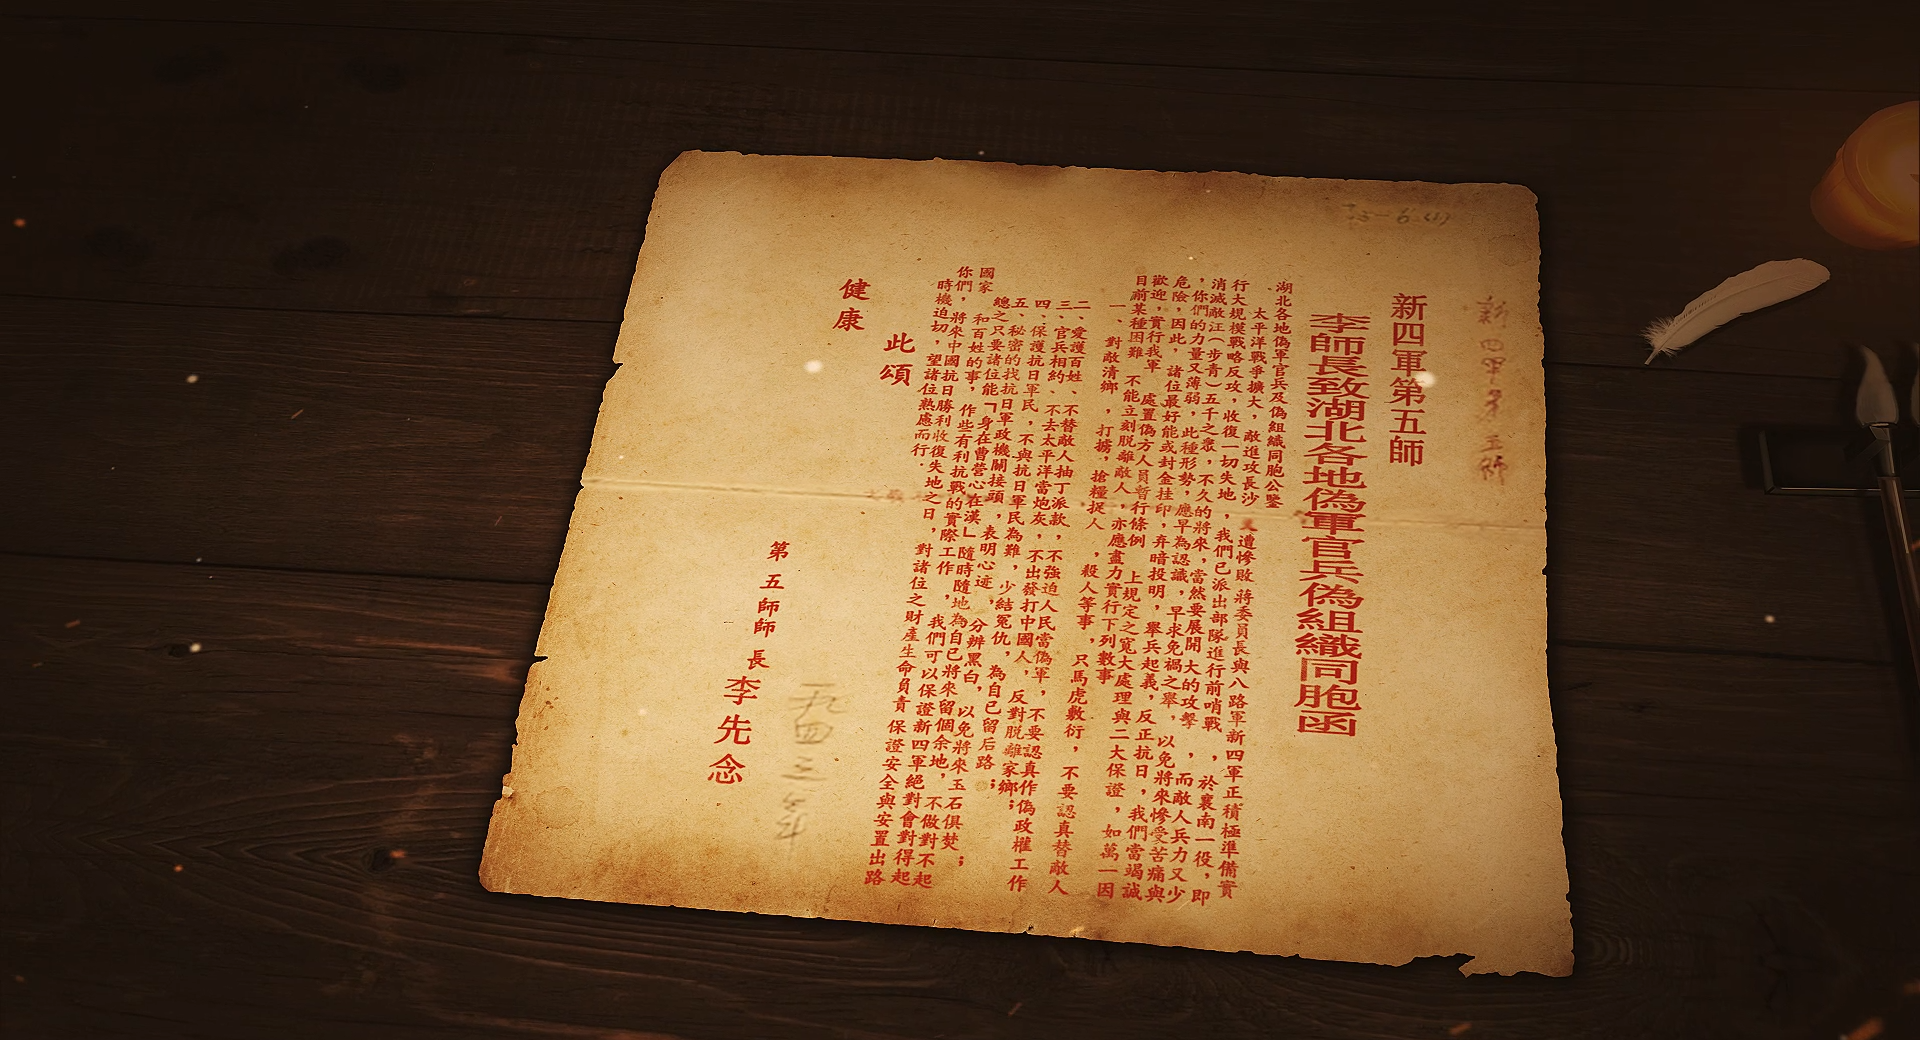 新四軍第五師
新四軍第五師
李師長致湖北各地偽軍官兵偽組織同胞函
湖北各地偽軍官兵及偽組織同胞公鑒
太平洋戰爭擴大，敵進攻長沙又遭慘敗 將委員長與八路軍新四軍正積極準備實
行大規模戰略反攻，收復一切失地，我們已派出部隊進行前哨戰，於襄南一役，即
消滅敵汪（步青）五千之眾，不久的將來，當然要展開大的攻擊，而敵人兵力又少
，你們的力量又薄弱，此種形勢，應早為認識，早求免禍之舉，以免將來慘受苦痛與
危險，因此，諸位最好能或封金挂印，弃暗投明，舉兵起義，反正抗日，我們當竭誠
歡迎，實行我軍 處置偽方人員暫行條例 上規定之寬大處理與二大保證，如萬一因
目前某種困難 不能立刻脫離敵人，亦應盡力實行下列數事
一、對敵清鄉，打擄，搶糧捉人，殺人等事，只馬虎敷衍，不要認真替敵人
二、愛護百姓、不替敵人抽丁派款，不強迫人民當偽軍，不要認真作偽政權工作
三、官兵相約、不去太平洋當炮灰，不出發打中國人，反對脫離家鄉；
四、保護抗日軍民，不與抗日軍民為難，少結冤仇，為自己留后路；
五、秘密的找抗日軍政機關接頭，表明心迹，分辨黑白，以免將來玉石俱焚；
總之只要諸位能「身在曹營心在漢」隨時隨地為自己將來留個余地，不做對不起
國家和百姓的事，作些有利抗戰的實際工作，我們可以保證新四軍絕對會對得起
你們，將來中國抗日勝利收復失地之日，對諸位之財產生命負責保證安全與安置出路
時機迫切，望諸位熟慮而行.
此頌
健康
第五師師長李先念
一九四三年